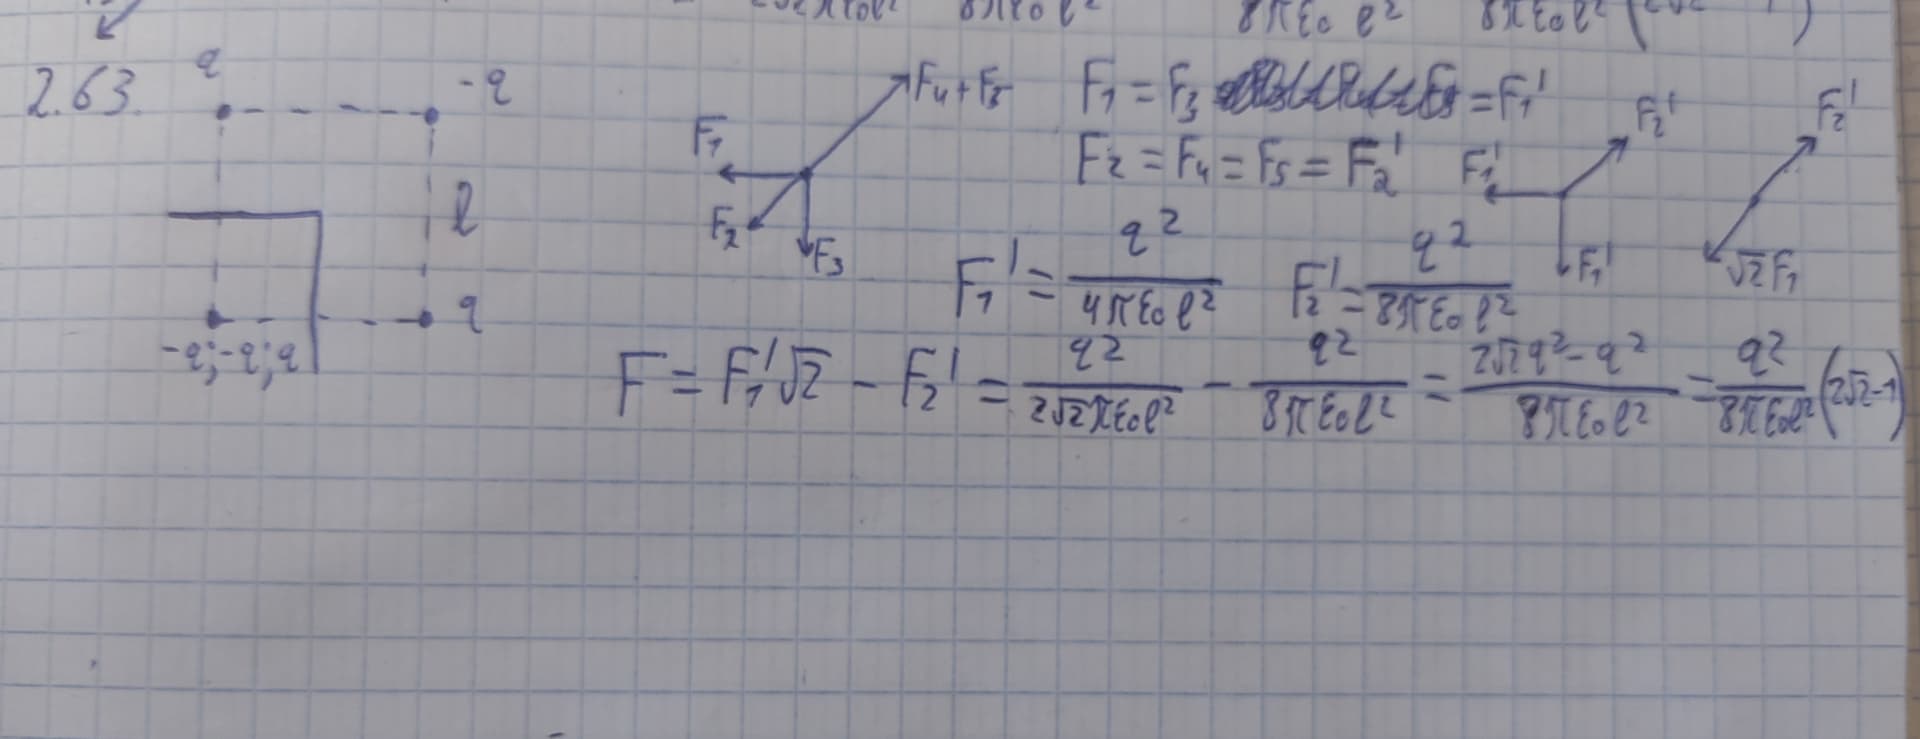 2√2πε₀l² 8πε₀l² 8πε₀l² 8πε₀l² (2√2 )
2.63. q -q
l
q
-q;-q;q
F₁ F₂ F₃ F₄+F₅
F₁ = F₃ = F₁'
F₂ = F₄ = F₅ = F₂'
F₁' F₂' F₁'
F₂' √2 F₁
F₁' = q²/4πε₀l² F₂' = q²/8πε₀l²
F = F₁'√2 - F₂' = q²/2√2πε₀l² - q²/8πε₀l² = 2√2q²-q²/8πε₀l² = q²/8πε₀l² (2√2-1)